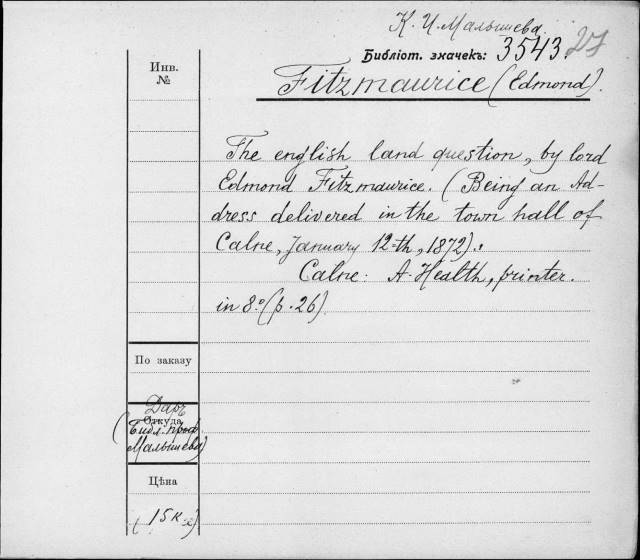 К. И. Малышева.
Библіот. значекъ: 3543. 27
Fitzmaurice (Edmond).
Инв.
№
The english land question, by lord
Edmond Fitzmaurice. (Being an Ad-
dress delivered in the town hall of
Calne, January 12-th, 1872).
Calne: A. Health, printer.
in 8.° (p. 26)
По заказу
Даръ
Откуда
(Библ. проф.
Малышева)
Цѣна
(15 к.)